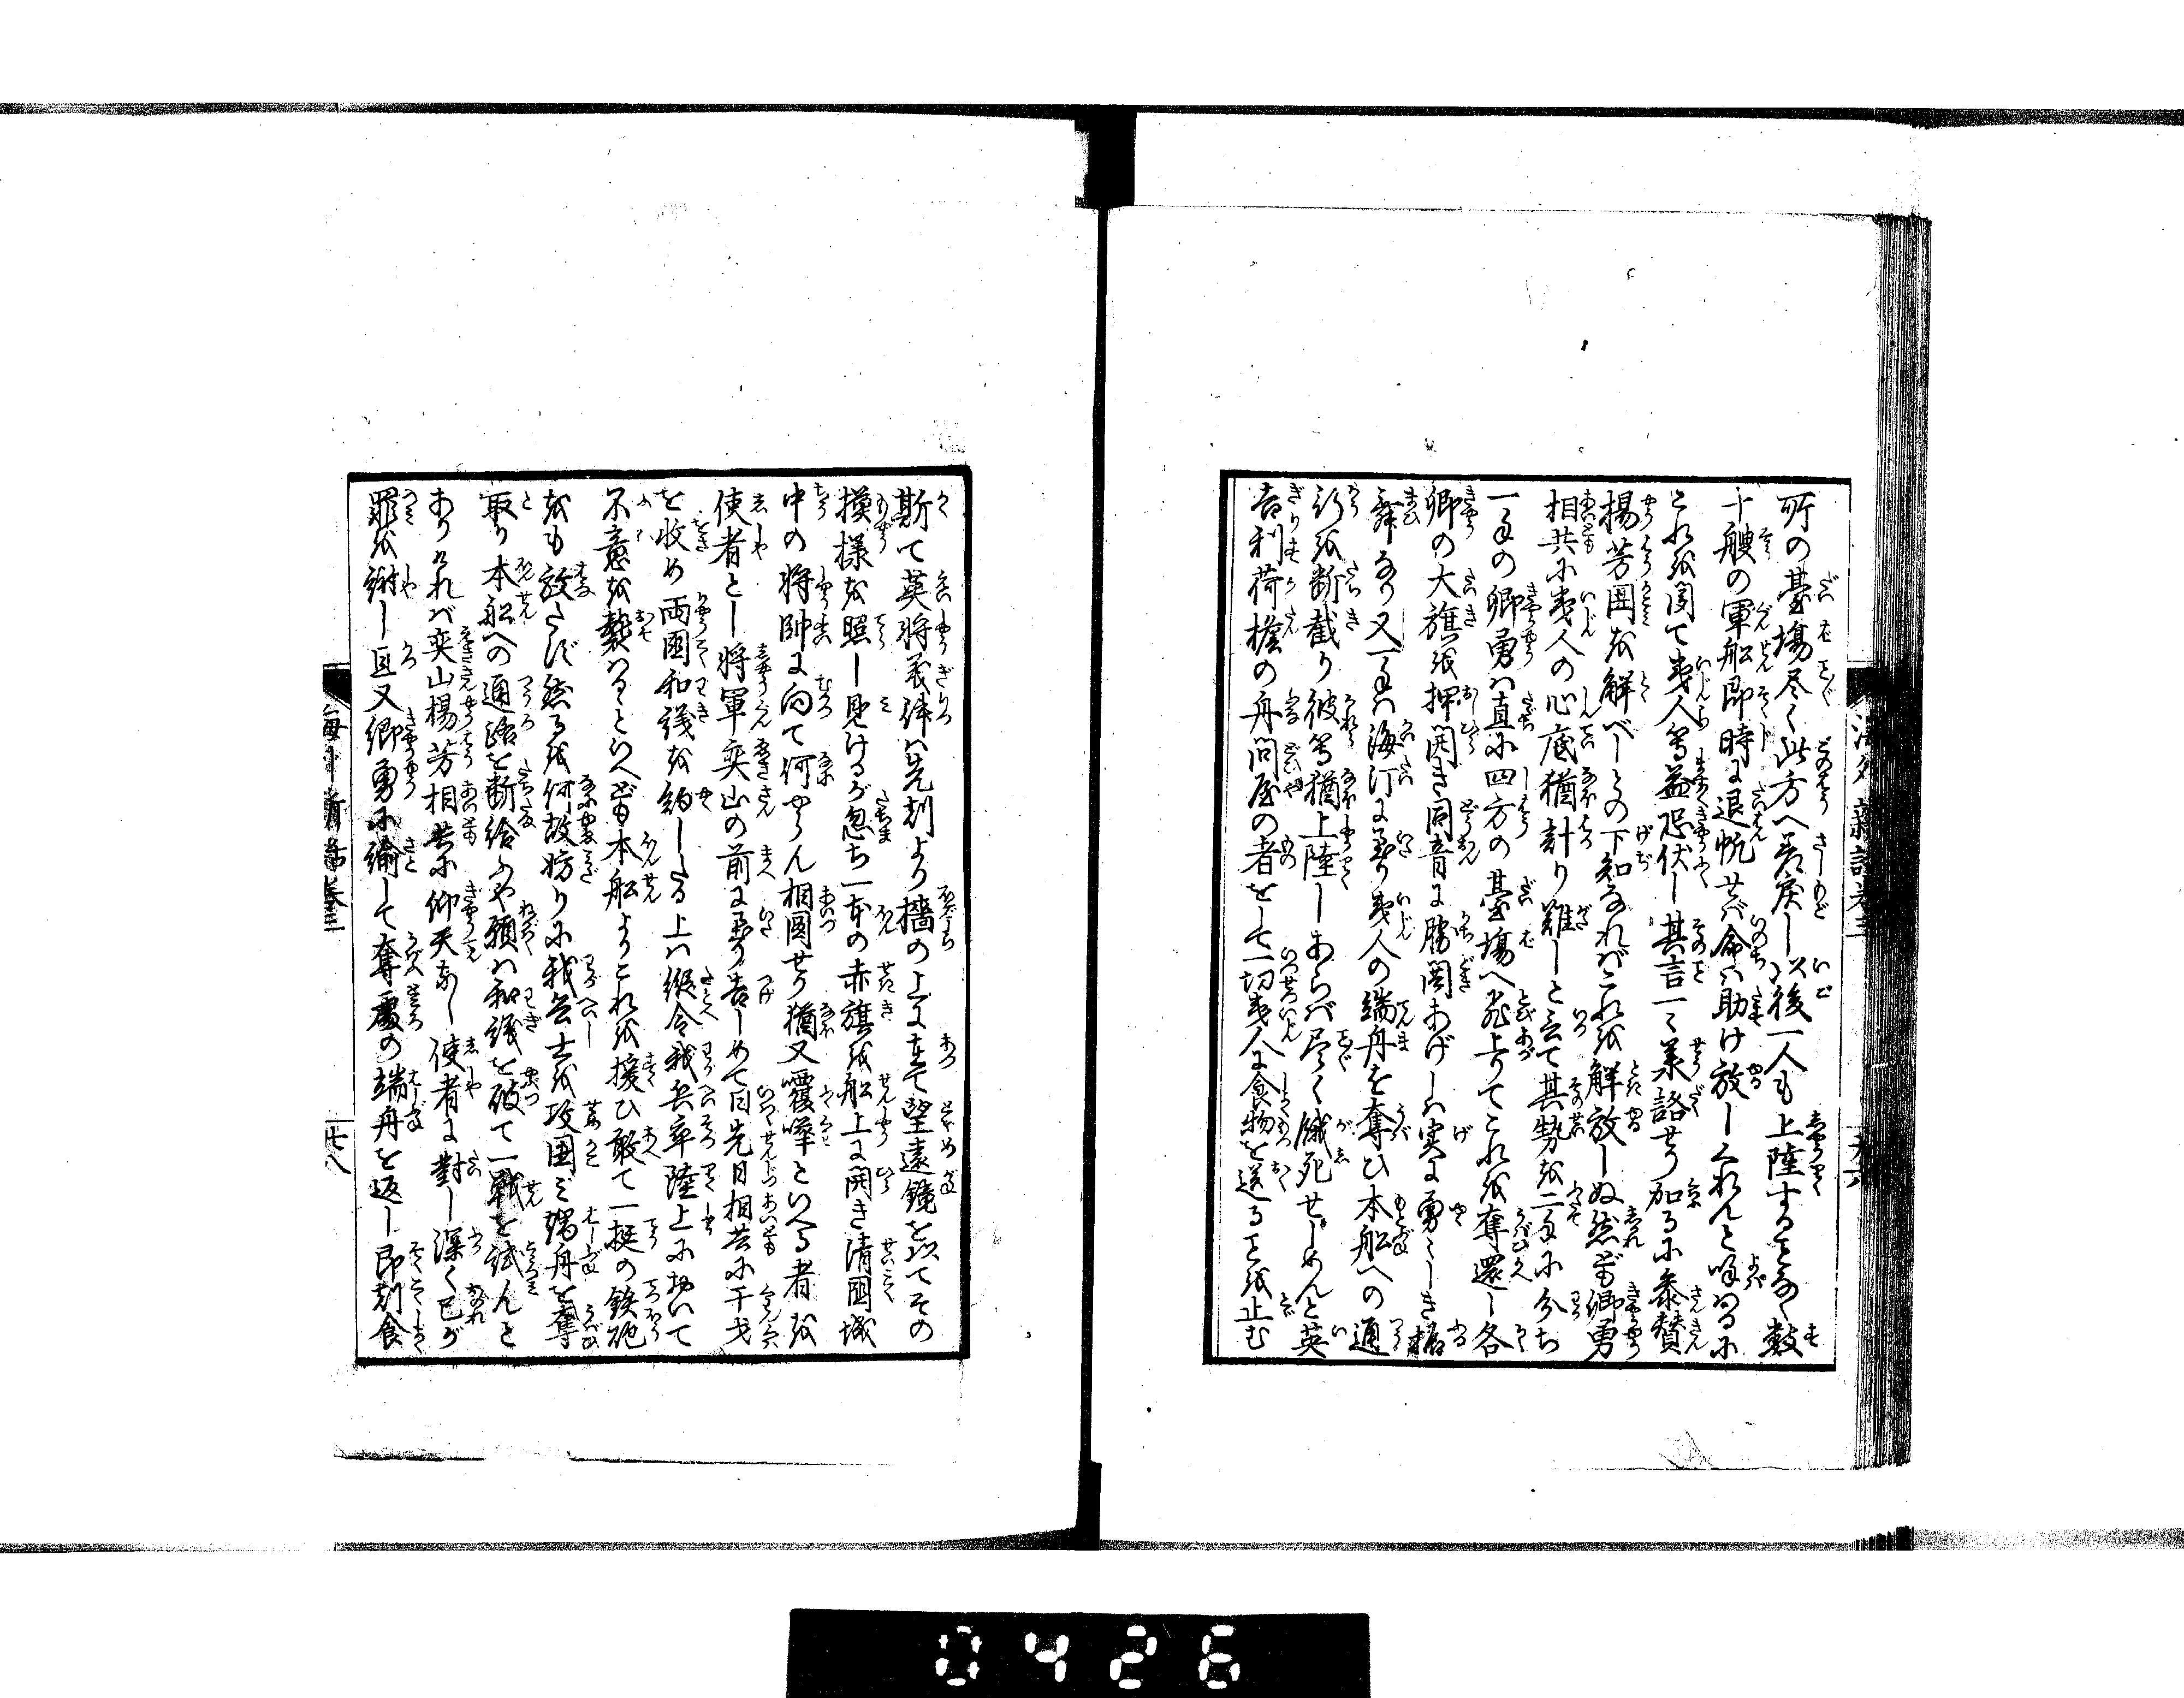 所の臺塲尽く此方へ差戻し以後一人も上陸することなく數
十艘の軍船即時に退帆せバ命ハ助け放しくれんと呼はるに
これを聞て夷人等益恐伏し其言一々業諾せり加るに参賛
楊芳囲を解べしとの下知なれバこれを解放しぬ然ども卿勇
相共に夷人の心底猶計り難しと云て其勢を二手に分ち
一手の卿勇ハ直に四方の臺塲へ飛上りてこれを奪還し各
卿の大旗を押開き同音に勝閧あげしハ実に勇々しき振
舞なり又一手ハ海汀に至り夷人の端舟を奪ひ本船への通
路を断截り彼等猶上陸しあらバ尽く餓死せしめんと英
吉利荷擔の舟問屋の者をして一切夷人に食物を送ることを止む
斯て英将義律ハ先刻より檣の上に在て望遠鏡を以てその
摸様を照し見けるが忽ち一本の赤旗を船上に開き清國城
中の将帥に向て何やらん相圖せり猶又覆嘩といへる者を
使者とし将軍奕山の前に至り告しめて曰先日相共に干戈
を收め両國和議を約したる上ハ縦令我兵卒陸上に於いて
不意を襲はるゝといへども本船よりこれを援ひ敢て一挺の鉄砲
をも放たず然るを何故妨りに我兵士を攻囲ミ端舟を奪
取り本船への通路を断給ふや願ハ和議を破て一戰を試んと
ありけれバ奕山楊芳相共に仰天なし使者に對し深く己が
罪を謝し且又卿勇に諭して奪處の端舟を返し即刻食
海外新話巻三
廿八
0426